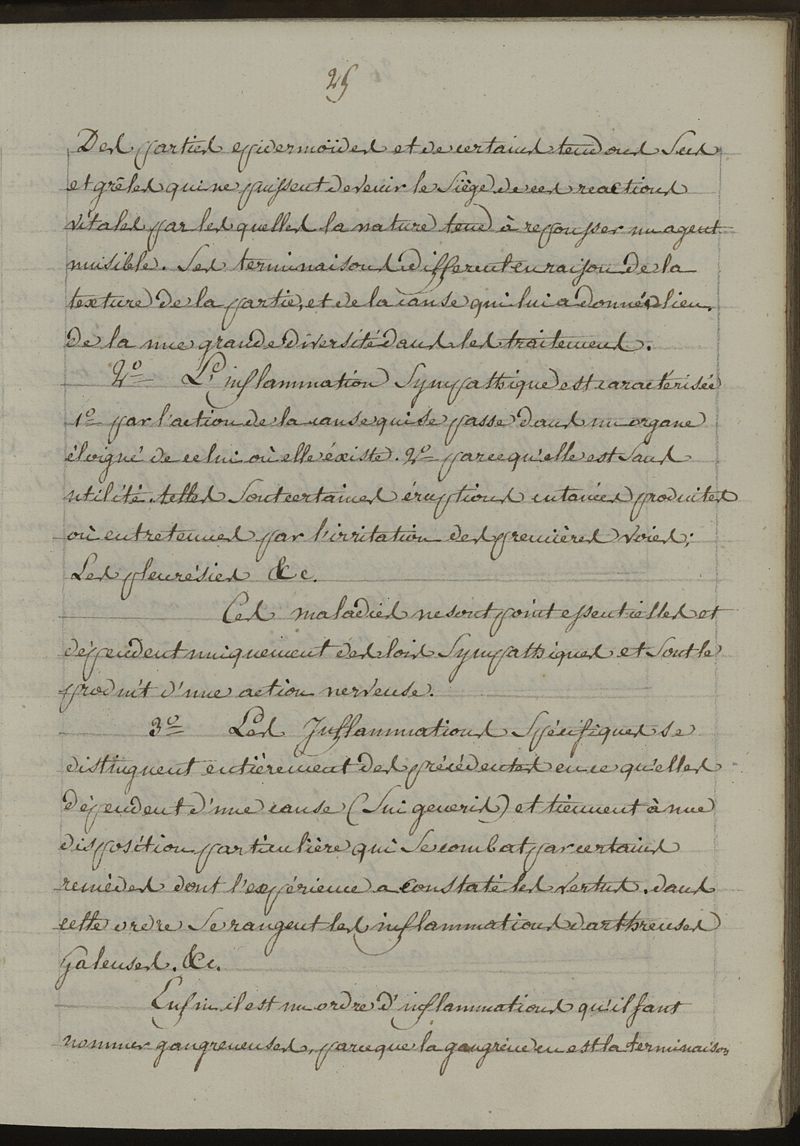 25
Des parties epidermoïdes et de certains tendons secs
et grêles qui ne puissent devenir le siège de ces reactions
vitales par les quelles la nature tend à repousser un agent
nuisible. Ses terminaisons different en raison de la
texture de la partie, et de la cause qui lui a donné lieu.
de la une grande diversité dans les traitement.
2º L'inflammation Sympathique est caractérisée
1º par l'action de la cause qui se passe dans un organe
éloigné de celui où elle éxiste. 2º parcequ'elle est sans
utilité. telles sont certaines éruptions cutanées produites
où entretenues par l'irritation des premières voies;
Les pleurésies &c.
Ces maladies ne sont point essentielles et
dépendent uniquement des lois Sympathiques et sont le
produit d'une action nerveuse.
3º Les Inflammations Spécifiques se
distinguent entiérement des précédentes en ce qu'elles
dépendent d'une cause (Sui generis) et tiennent à une
disposition particulière qui se combat par certains
remédes dont l'expérience a constaté les vertus. dans
cette ordre se rangent les inflammations darthreuses
galeuses. &c.
Enfin il est un ordre d'inflammations qu'il faut
nommer gangreneuses, parceque la gangrène en est la terminaison